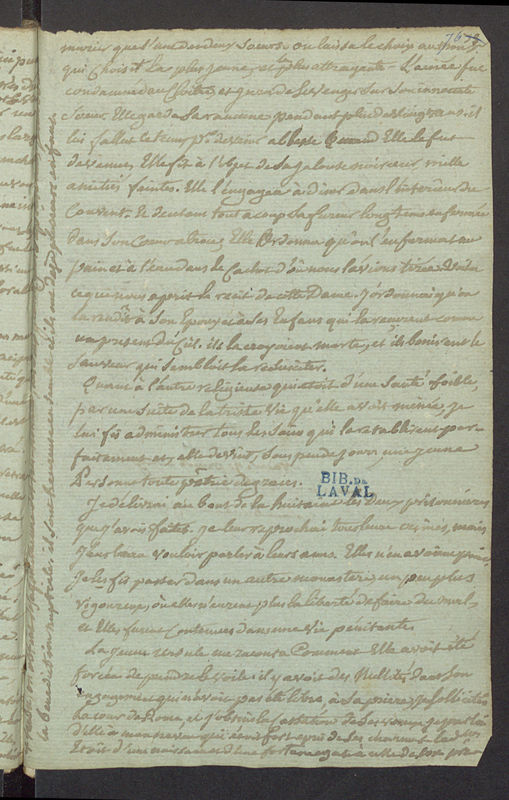 76
marier que l'une des deux Soeurs. on laissa le choix au
qui choisit La plus jeune, et la plus attrayante. L'ainée fut
condamnée au Cloitre, et jura de se venger sur Son innocente
Soeur. Elle garda Sa rancune pendant plus de vingt ans. il
lui fallut le tems pr. devenir abbesse. Quand Elle le fut
devenue, Elle fit à l'objet de Sa jalouse noirceur, mille
amitiés feintes. Elle l'engagea à diner dans l'interieur du
Couvent. Et
dans Son Coeur atroce; Elle Ordonna qu'on l'enfermat au
pain et à l'eau dans le Cachot d'où nous l'avions tirée.
ce que nous aprit le recit de cette Dame. J'ordonnai qu'on
la rendit à Son Epoux et à ses Enfans qui la reçurent comme
un present du Ciel. ils la croyoient morte, et ils bénirent le
Sauveur qui Sembloit la resusciter.
Quant à l'autre religieuse qui étoit d'une Santé foible,
par une Suite de la triste vie qu'elle avoit menée, je
lui fis administrer tous les Soins qui la retablirent par-
faitement et, elle devint, Sous peu de jours une jeune
Personne toute pétrie de graces.
BIB. DE
LAVAL
Je delivrai au bout de la huitaine les deux prisonnières
que j'avois faites. je leur reprochai tous leurs crimes, mais
J'eus beau vouloir parler à leurs ames. Elles n'en avoient point.
Je les fis passer dans un autre monastere, un peu plus
rigoureux, où elles n'eurent plus la liberté de faire du mal,
et Elles furent Contenues dans une vie pénitante.
La jeune Ursule me raconta Comment Elle avoit été
forcée de prendre le voile. il y avoit des Nullités dans Son
engagement qui n'avoit pas été libre, à Sa priere, je sollicitai
la cour de Rome, et j'obtins la Cassation de Ses voeux. je parlai
d'elle à mon neveu qui devint fort epris de Ses charmes.
Etoit d'une naissance